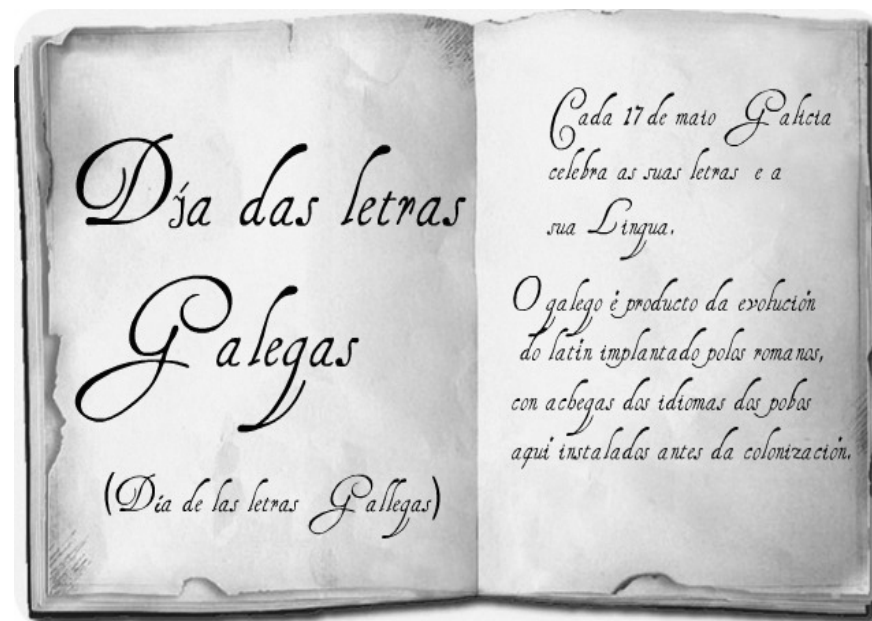 Día das letras
Galegas
(Día de las letras Gallegas)
Cada 17 de maio Galicia
celebra as suas letras e a
sua Lingua.
O galego é producto da evolución
do latín implantado polos romanos,
con achegas dos idiomas dos pobos
aquí instalados antes da colonización.